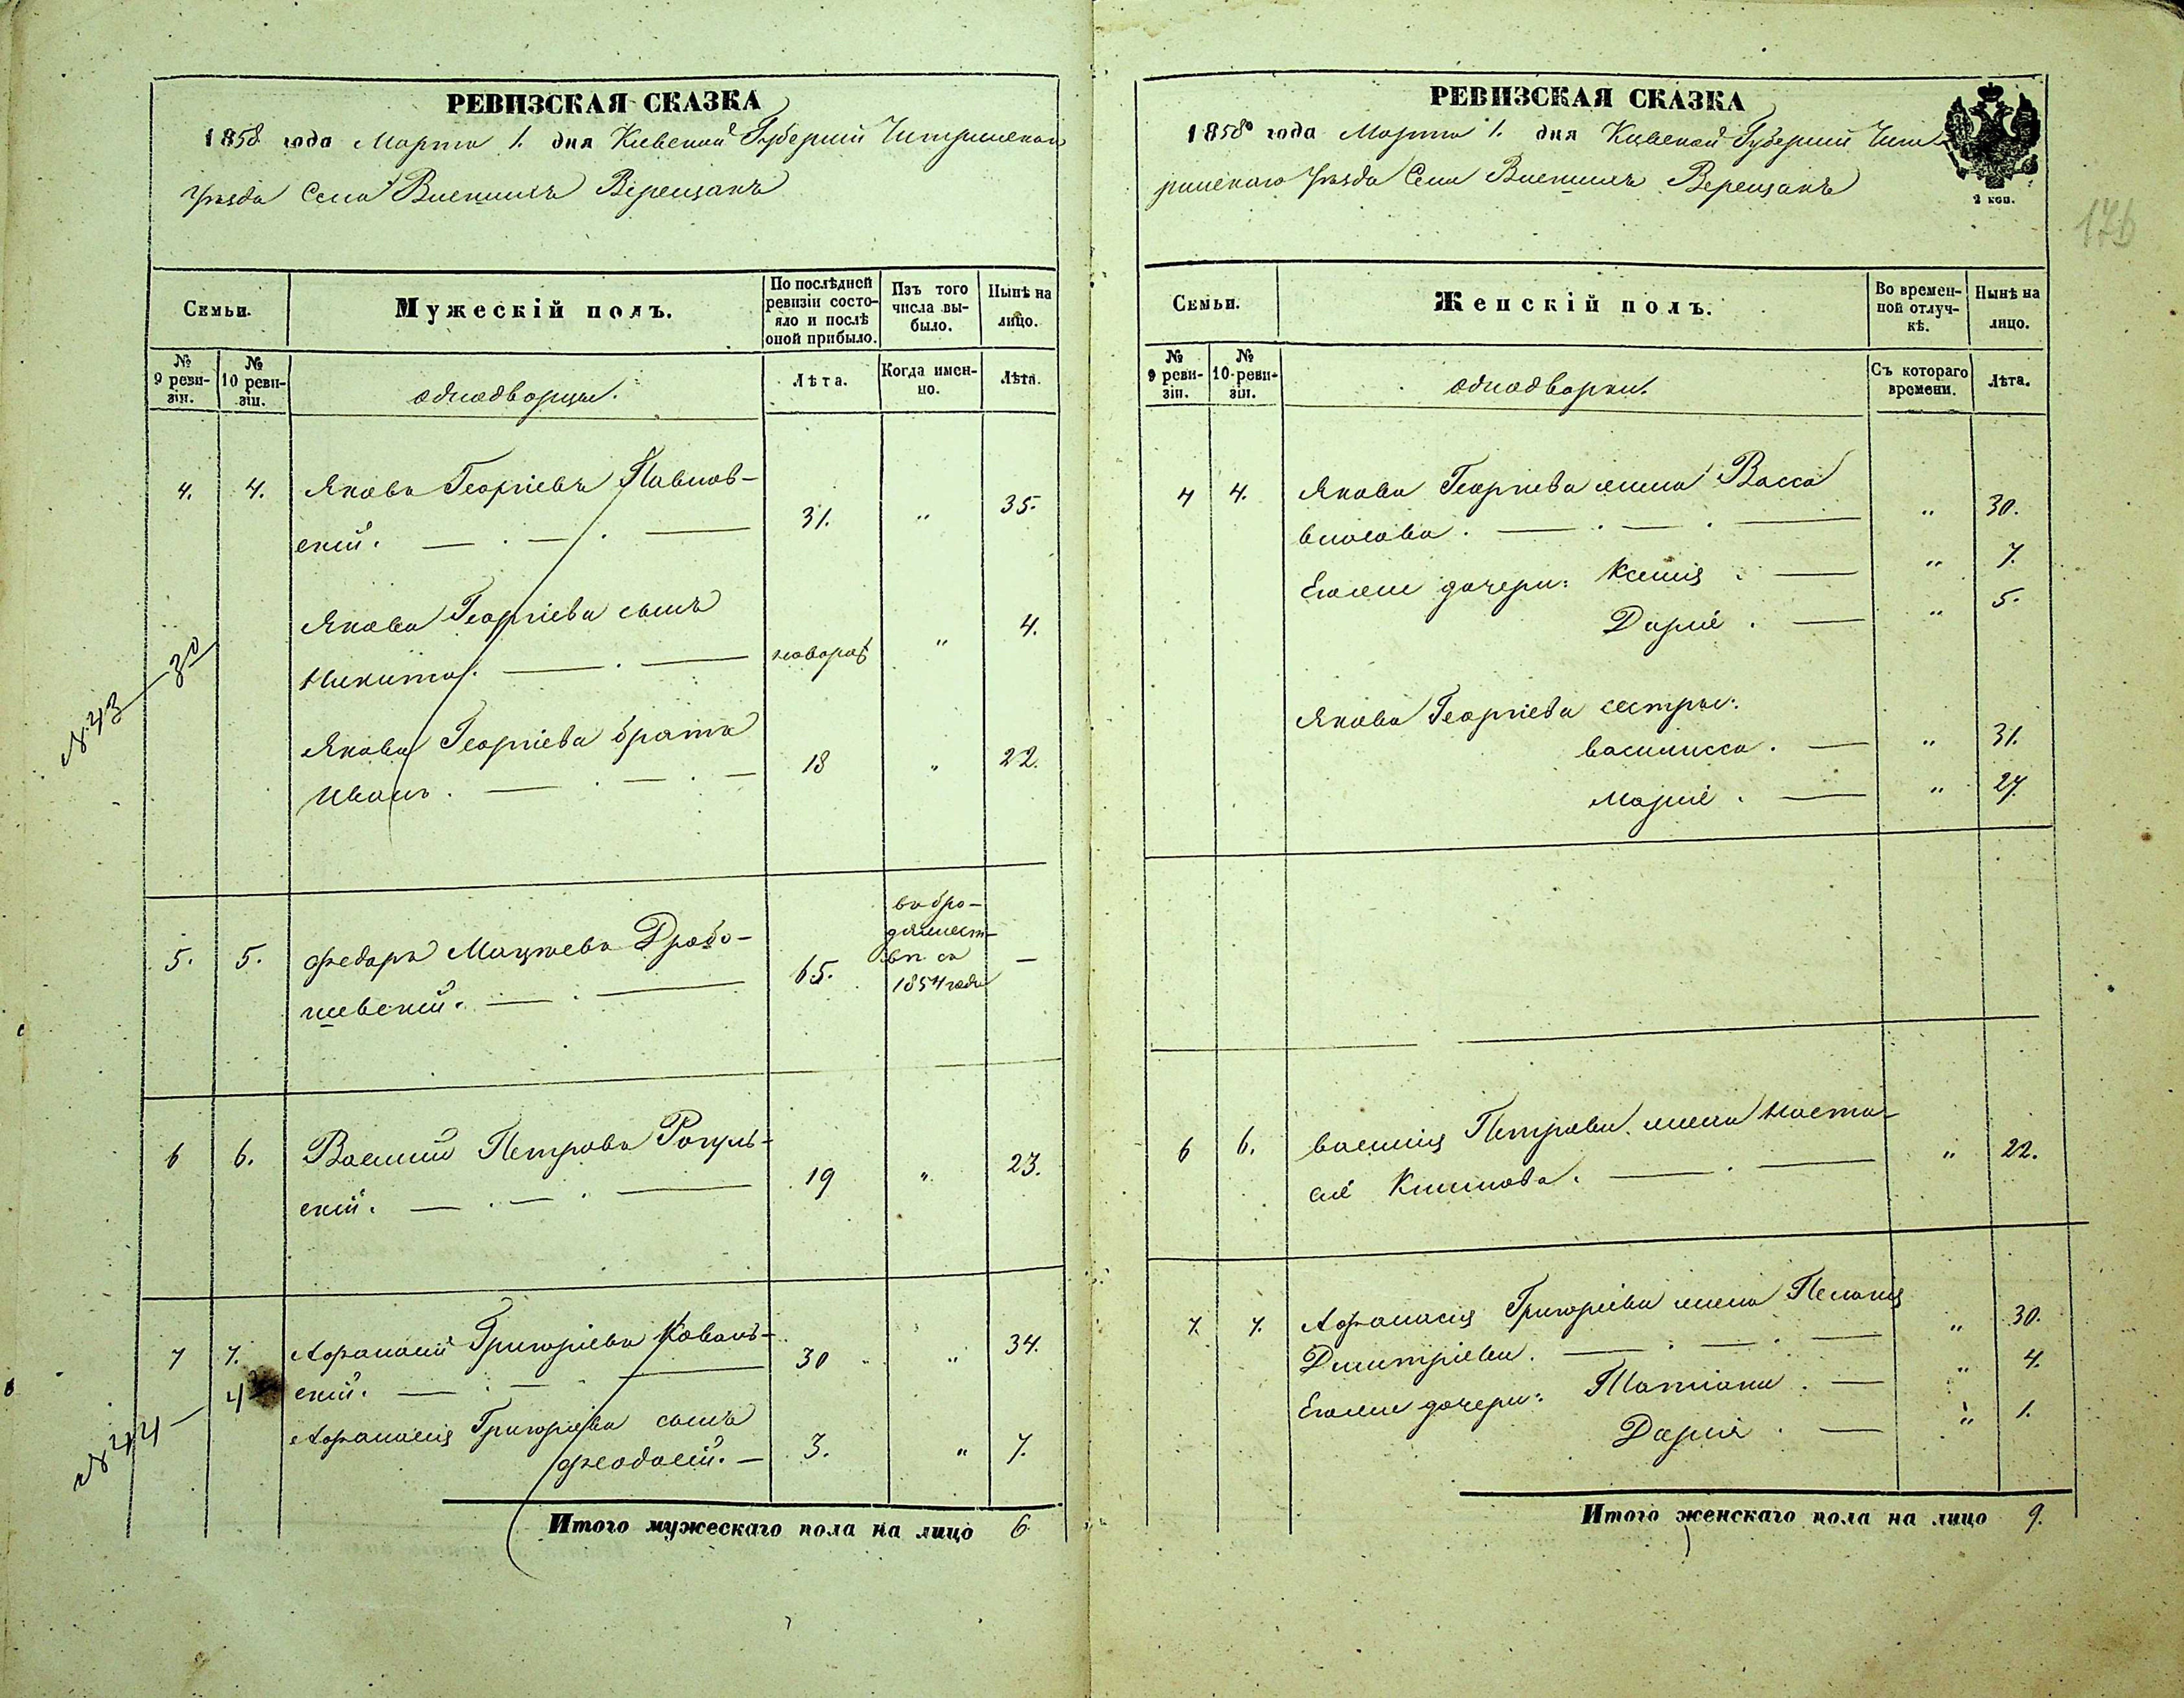 РЕВИЗСКАЯ СКАЗКА
1858 года Марта 1. дня Киевской Губерніи Чигринскаго
Уѣзда Села Верещакъ
Семьи.
Мужескій полъ.
По послѣдней ревизіи состояло и послѣ оной прибыло.
Изъ того числа выбыло.
Нынѣ на лицо.
№ 9 ревизіи.
№ 10 ревизіи.
однодворцы.
Лѣта.
Когда именно.
Лѣта.
4. 4. Яковъ Георгіевъ Павлов-
скій. 31. " 35.
Якова Георгіева сынъ
Никита. новорож " 4.
Якова Георгіева братъ
Иванъ. 18 " 22.
№ 43 — 30
5. 5. Федоръ
шевскій. 65. въ бро-
дяжест-
вѣ съ
1854 года —
6 6. Василий Петровъ Рогуль-
скій. 19 " 23.
7 7. Афанасій Григоріевъ Коваль-
скій. 30 " 34.
Афанасія Григоріева сынъ
Феодосій. 3. " 7.
№ 44 — 4
Итого мужескаго пола на лицо 6
РЕВИЗСКАЯ СКАЗКА
1858 года Марта 1. дня Кіевской Губерніи Чиги-
ринскаго Уѣзда Села Верещакъ
2 коп.
176
Семьи.
Женскій полъ.
Во временной отлучкѣ.
Нынѣ на лицо.
№ 9 ревизіи.
№ 10 ревизіи.
однодворки.
Съ котораго времени.
Лѣта.
4 4. Якова Георгіева жена Васса
Власова. " 30.
Еголже дочери: Ксенія " 7.
Дарія. " 5.
Якова Георгіева сестры:
Василисса. " 31.
Марія. " 27.
6 6. Василія Петрова жена Наста-
сія Климова. " 22.
7. 7. Афанасія Григоріева жена Пелагія
Дмитріева. " 30.
Еголже дочери: Татіана. " 4.
Дарія. " 1.
Итого женскаго пола на лицо 9.